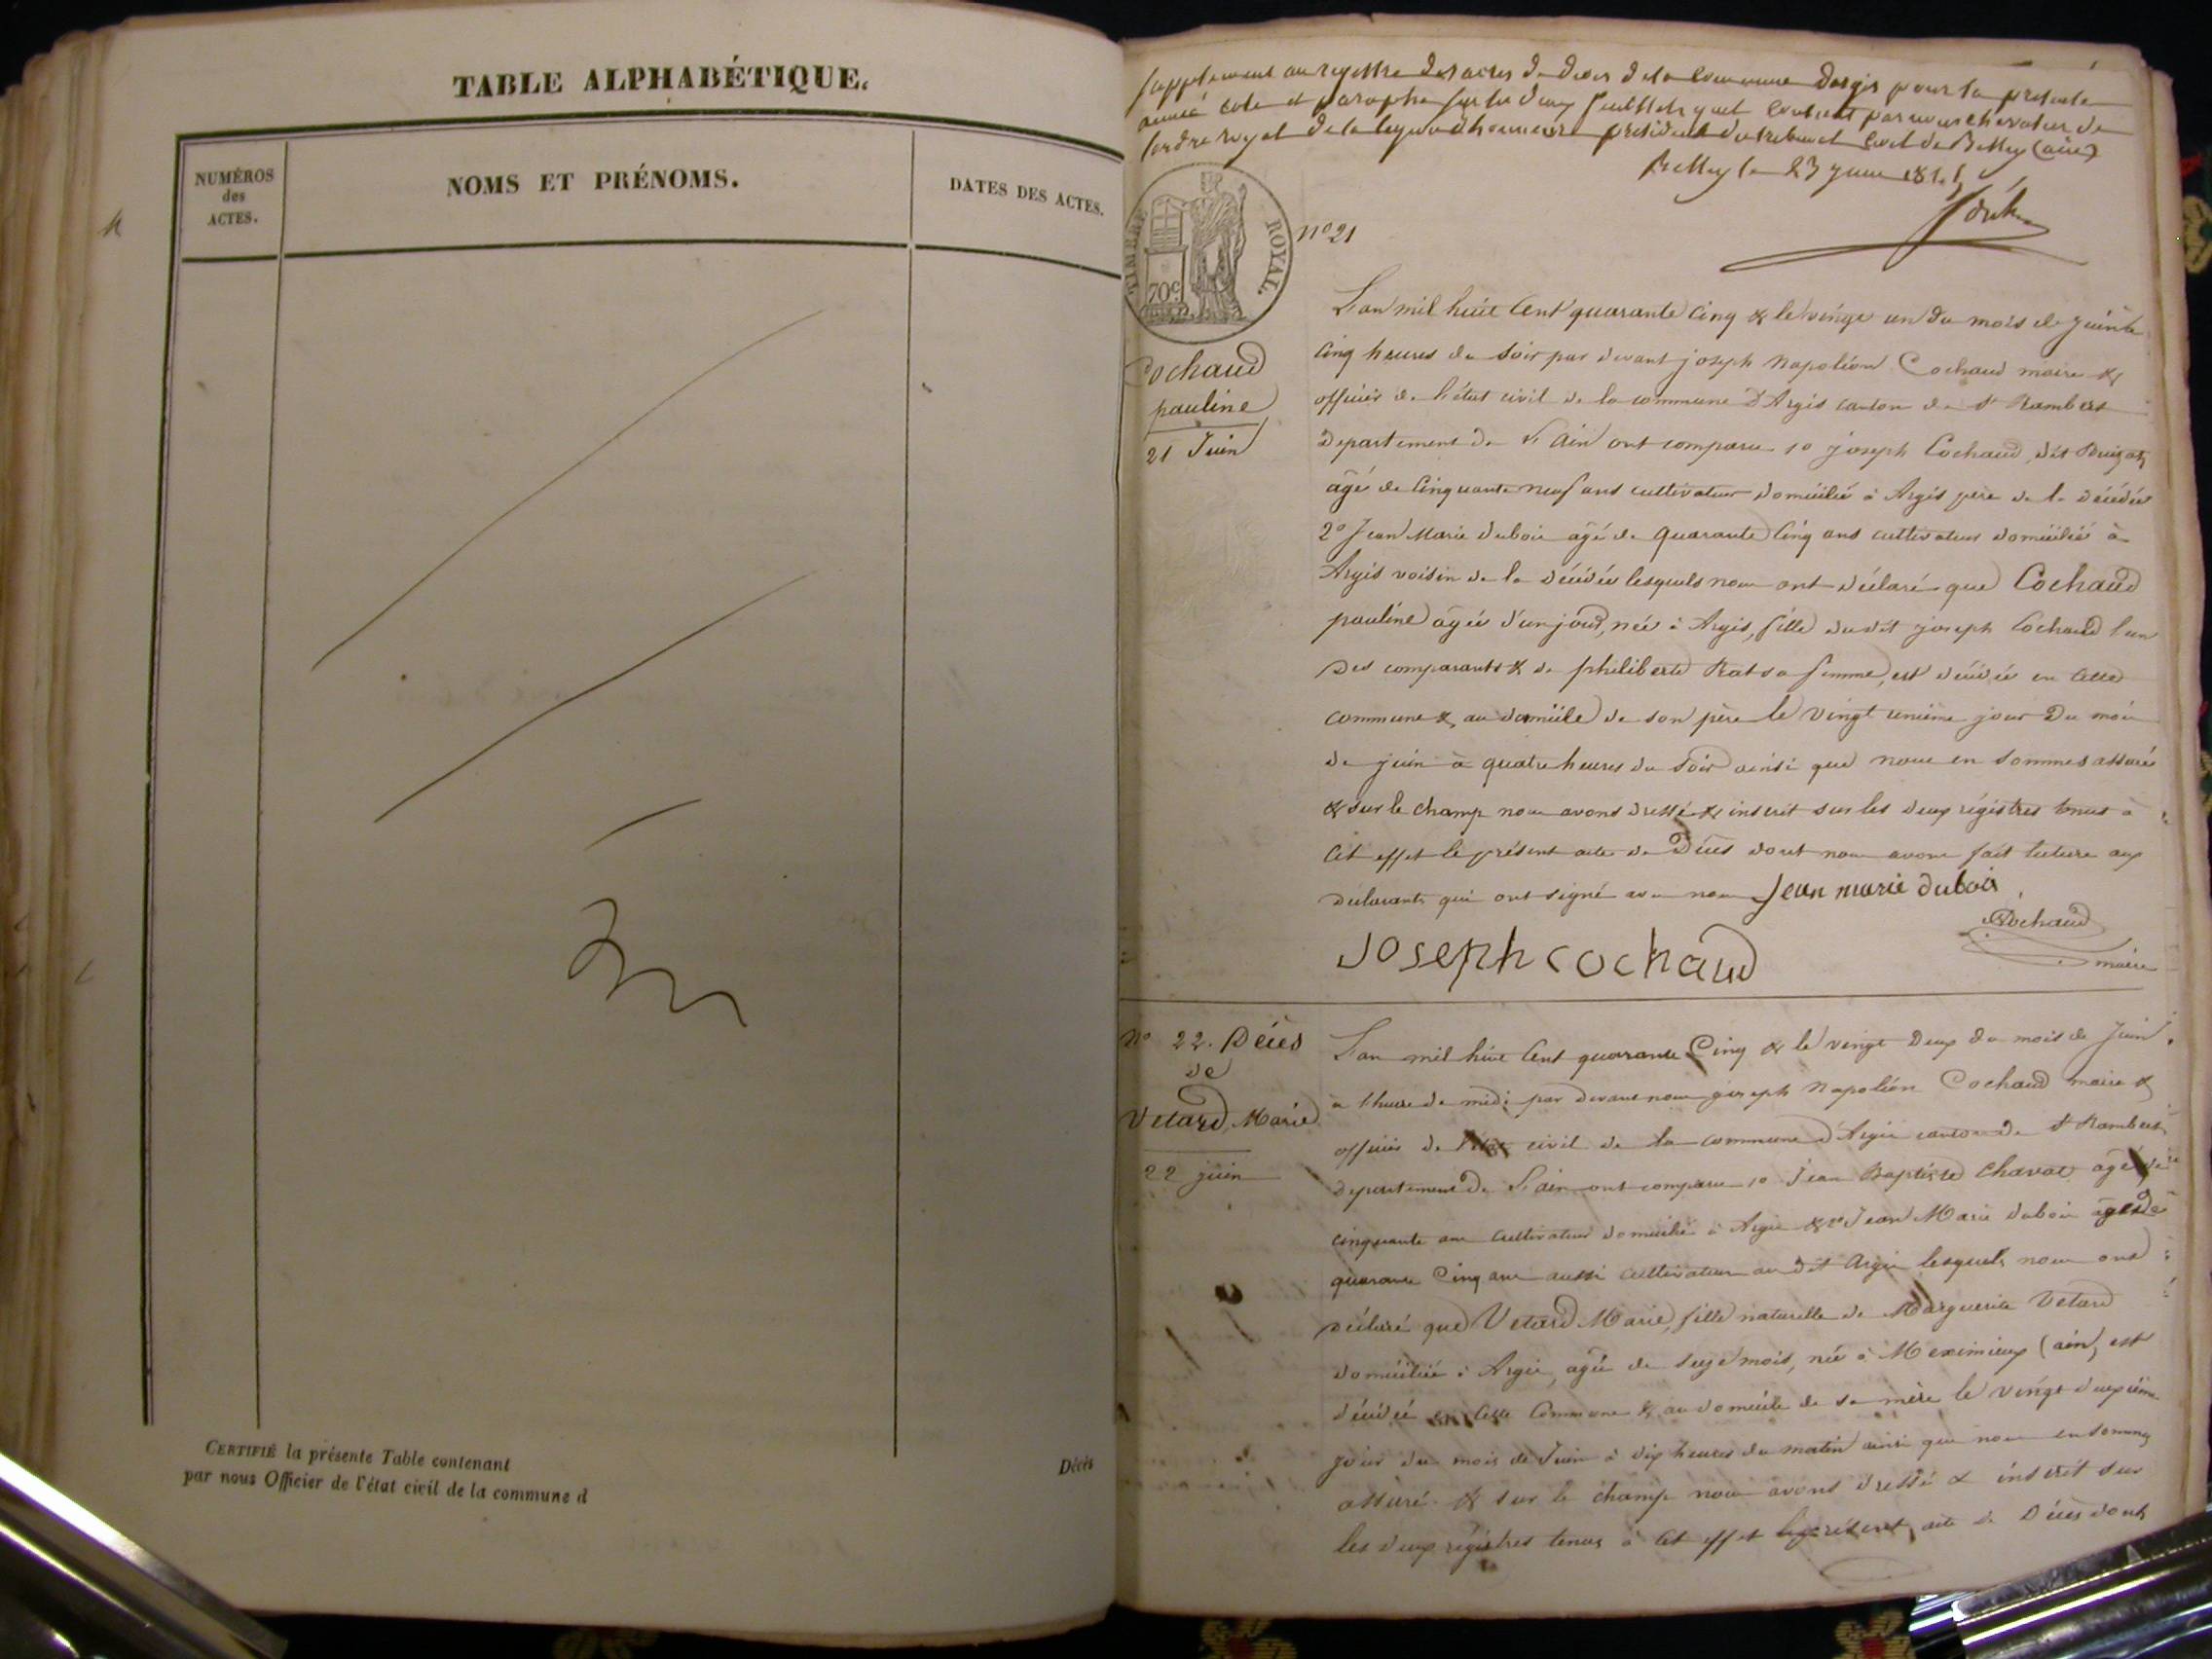 TABLE ALPHABÉTIQUE.
NUMÉROS
des
ACTES.
NOMS ET PRÉNOMS.
DATES DES ACTES.
CERTIFIÉ la présente Table contenant
par nous Officier de l'état civil de la commune d
Décès
Supplement au registre des actes de deces de la commune dargis pour la presente
année cote et paraphe sur les deux feuillets quil contient par nous chevalier de
lordre royal de la legion dhonneur president du tribunal civil de Belley (ain)
Belley le 23 juin
TIMBRE ROYAL.
70c
no 21
Cochaud
pauline
21 Juin
L'an mil huit Cent quarante Cinq & le vingt un du mois de juin à
Cinq heures du soir par devant joseph Napoléon Cochaud maire &
officier de l'état civil de la commune d'Argis canton de St Rambert
departement de L'Ain ont comparu 1o joseph Cochaud, dit
agé de Cinquante neuf ans cultivateur domicilié à Argis père de la décédée
2o Jean Marie dubois agé de quarante Cinq ans cultivateur domicilié à
Argis voisin de la décédée lesquels nous ont déclaré que Cochaud
pauline agée d'un jour, née à Argis, fille dudit joseph Cochaud l'un
des comparants & de philiberte Rat sa femme, est décédée en Cette
commune & au domicile de son père le vingt unième jour du mois
de juin à quatre heures du soir ainsi que nous en sommes assuré
& sur le champ nous avons dressé & inscrit sur les deux régistres tenus à
Cet effet le présent acte de Décès dont nous avons fait lecture aux
déclarants qui ont signé avec nous Jean marie dubois
Cochaud
maire
Joseph cochaud
No 22. Décès
de
Vetard Marie
22 juin
L'an mil huit Cent quarante Cinq & le vingt Deux du mois de Juin
à l'heure de midi par devant nous joseph Napoléon Cochaud maire &
officier de l'état civil de la commune d'Argis canton de St Rambert
departement de L'ain ont comparu 1o Jean Baptiste Chavat agé de
cinquante ans cultivateur domicilié à Argis & 2o Jean Marie dubois agé de
quarante Cinq ans aussi cultivateur au dit Argis lesquels nous ont
déclaré que Vetard Marie, fille naturelle de Marguerite Vetard
domiciliée à Argis, agée de mois, née à Meximieux (ain) est
décédée en Cette Commune & au domicile de sa mère le vingt deuxième
jour du mois de Juin à dix heures du matin ainsi que nous en sommes
assuré & sur le champ nous avons dressé & inscrit sur
les deux régistres tenus à Cet effet le présent acte de Décès dont